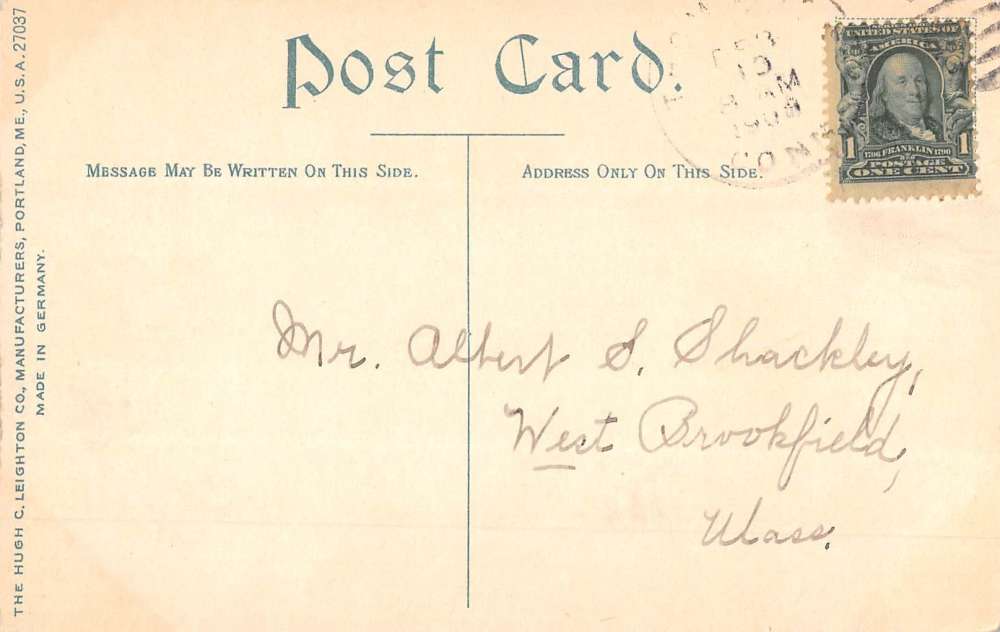 Post Card.
FEB
10
AM
CONN
UNITED STATES OF
AMERICA
1 1
1706 FRANKLIN 1790
POSTAGE
ONE CENT
MESSAGE MAY BE WRITTEN ON THIS SIDE.
ADDRESS ONLY ON THIS SIDE.
Mr. Albert S. Shackley,
West Brookfield,
Mass.
THE HUGH C. LEIGHTON CO., MANUFACTURERS, PORTLAND, ME., U.S.A. 27037
MADE IN GERMANY.